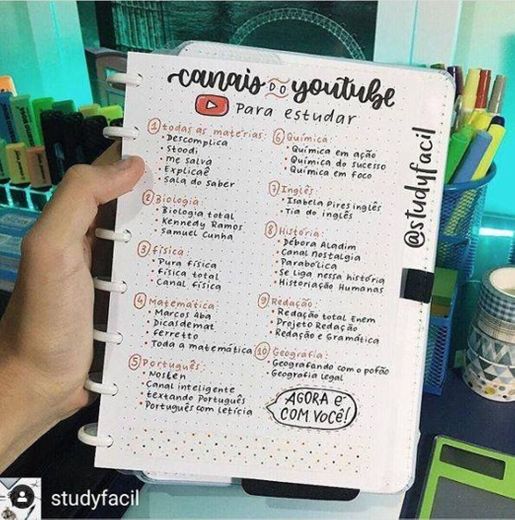 canais do youtube
Para estudar
@studyfacil
1 todas as matérias:
• Descomplica
• Stoodi
• me salva
• Explicaê
• Sala do saber
2 Biologia:
• Biologia total
• Kennedy Ramos
• Samuel Cunha
3 física:
• Pura física
• física total
• Canal física
4 Matemática:
• Marcos Aba
• Dicasdemat
• ferretto
• Toda a matemática
5 Português:
• Noslen
• Canal inteligente
• textando Português
• Português com letícia
6 Química:
• Química em ação
• Química do sucesso
• Química em foco
7 Inglês:
• Isabela Pires inglês
• Tia do inglês
8 História:
• Débora Aladim
• Canal Nostalgia
• Parabólica
• Se Liga nessa história
• Historiação Humanas
9 Redação:
• Redação total Enem
• Projeto Redação
• Redação e Gramática
10 Geografia:
• Geografando com o pofão
• Geografia legal
AGORA É
COM VOCÊ!
studyfacil